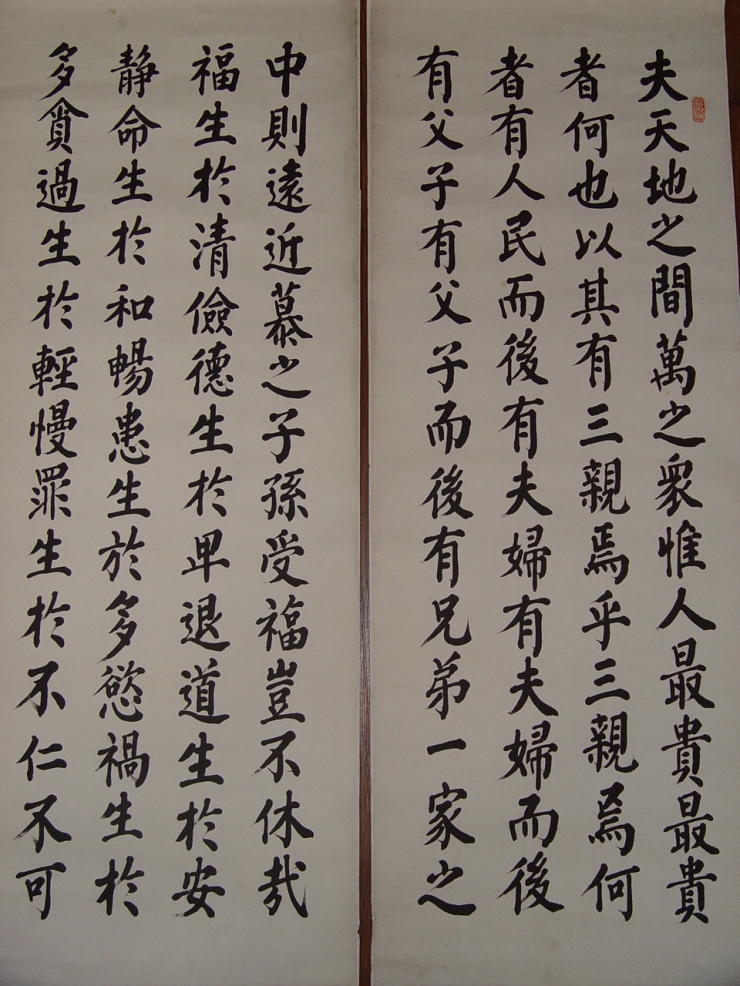 夫天地之間萬之衆惟人最貴最貴
者何也以其有三親焉乎三親焉何
者有人民而後有夫婦有夫婦而後
有父子有父子而後有兄弟一家之
中則遠近慕之子孫受福豈不休哉
福生於清儉德生於卑退道生於安
静命生於和暢患生於多慾禍生於
多貪過生於輕慢罪生於不仁不可